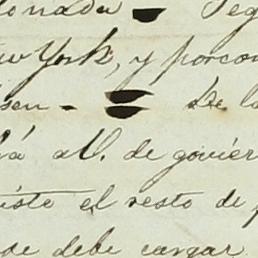 onada Seg
w York, y porcon
isen - = De la
rá a V. de goviér
iste el resto de p
de debe cargar